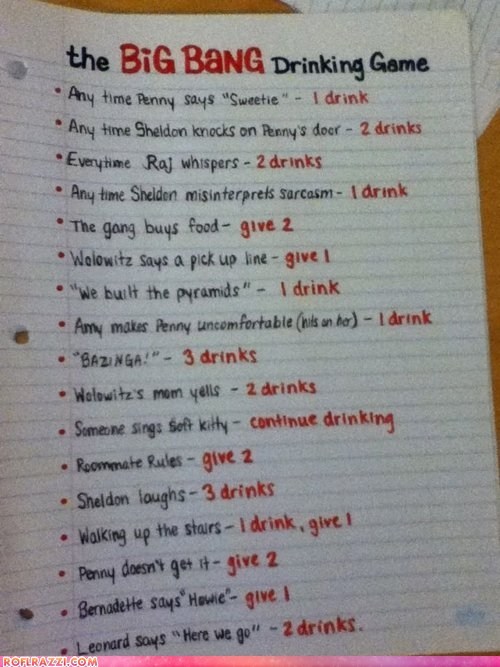 the BiG BANG Drinking Game
• Any time Penny says "Sweetie" - 1 drink
• Any time Sheldon knocks on Penny's door - 2 drinks
• Everytime Raj whispers - 2 drinks
• Any time Sheldon misinterprets sarcasm - 1 drink
• The gang buys food - give 2
• Wolowitz says a pick up line - give 1
• "We built the pyramids" - 1 drink
• Amy makes Penny uncomfortable (hits on her) - 1 drink
• "BAZINGA!" - 3 drinks
• Wolowitz's mom yells - 2 drinks
• Someone sings soft kitty - continue drinking
• Roommate Rules - give 2
• Sheldon laughs - 3 drinks
• Walking up the stairs - 1 drink, give 1
• Penny doesn't get it - give 2
• Bernadette says "Howie" - give 1
• Leonard says "Here we go" - 2 drinks.
ROFLRAZZI.COM